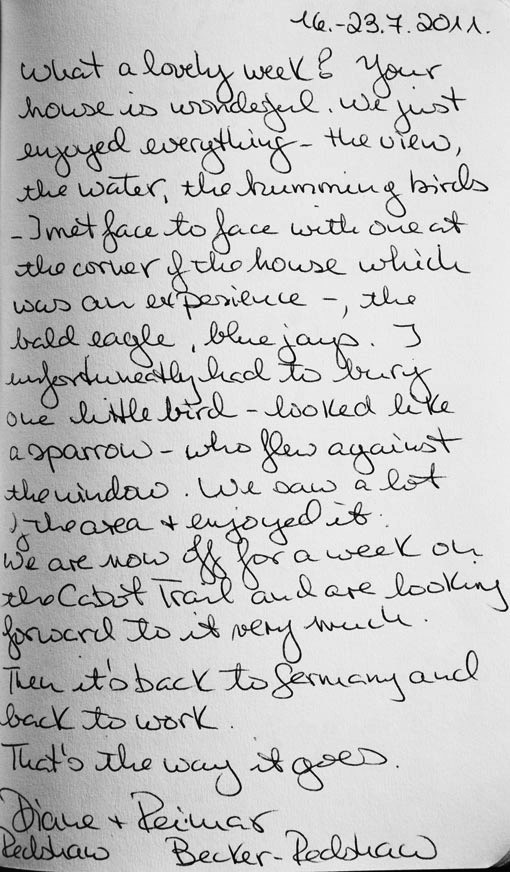 16.-23.7.2011.
What a lovely week! Your
house is wonderful. We just
enjoyed everything - the view,
the water, the humming birds
- I met face to face with one at
the corner of the house which
was an experience -, the
bald eagle, blue jays. I
unfortuneatly had to bury
one little bird - looked like
a sparrow - who flew against
the window. We saw a lot
of the area + enjoyed it.
We are now off for a week on
the Cabot Trail and are looking
forward to it very much.
Then it's back to Germany and
back to work.
That's the way it goes.
Diane + Reimar
Redshaw Becker-Redshaw